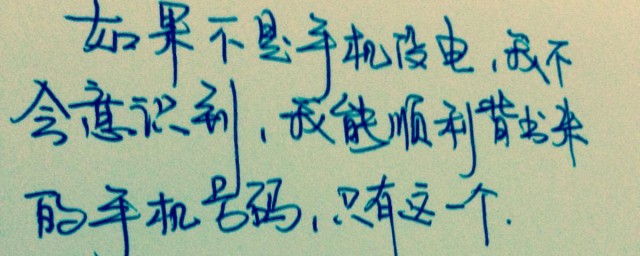 如果不是手机没电,我不
会意识到,我能顺利背出来
的手机号码,只有这一个.